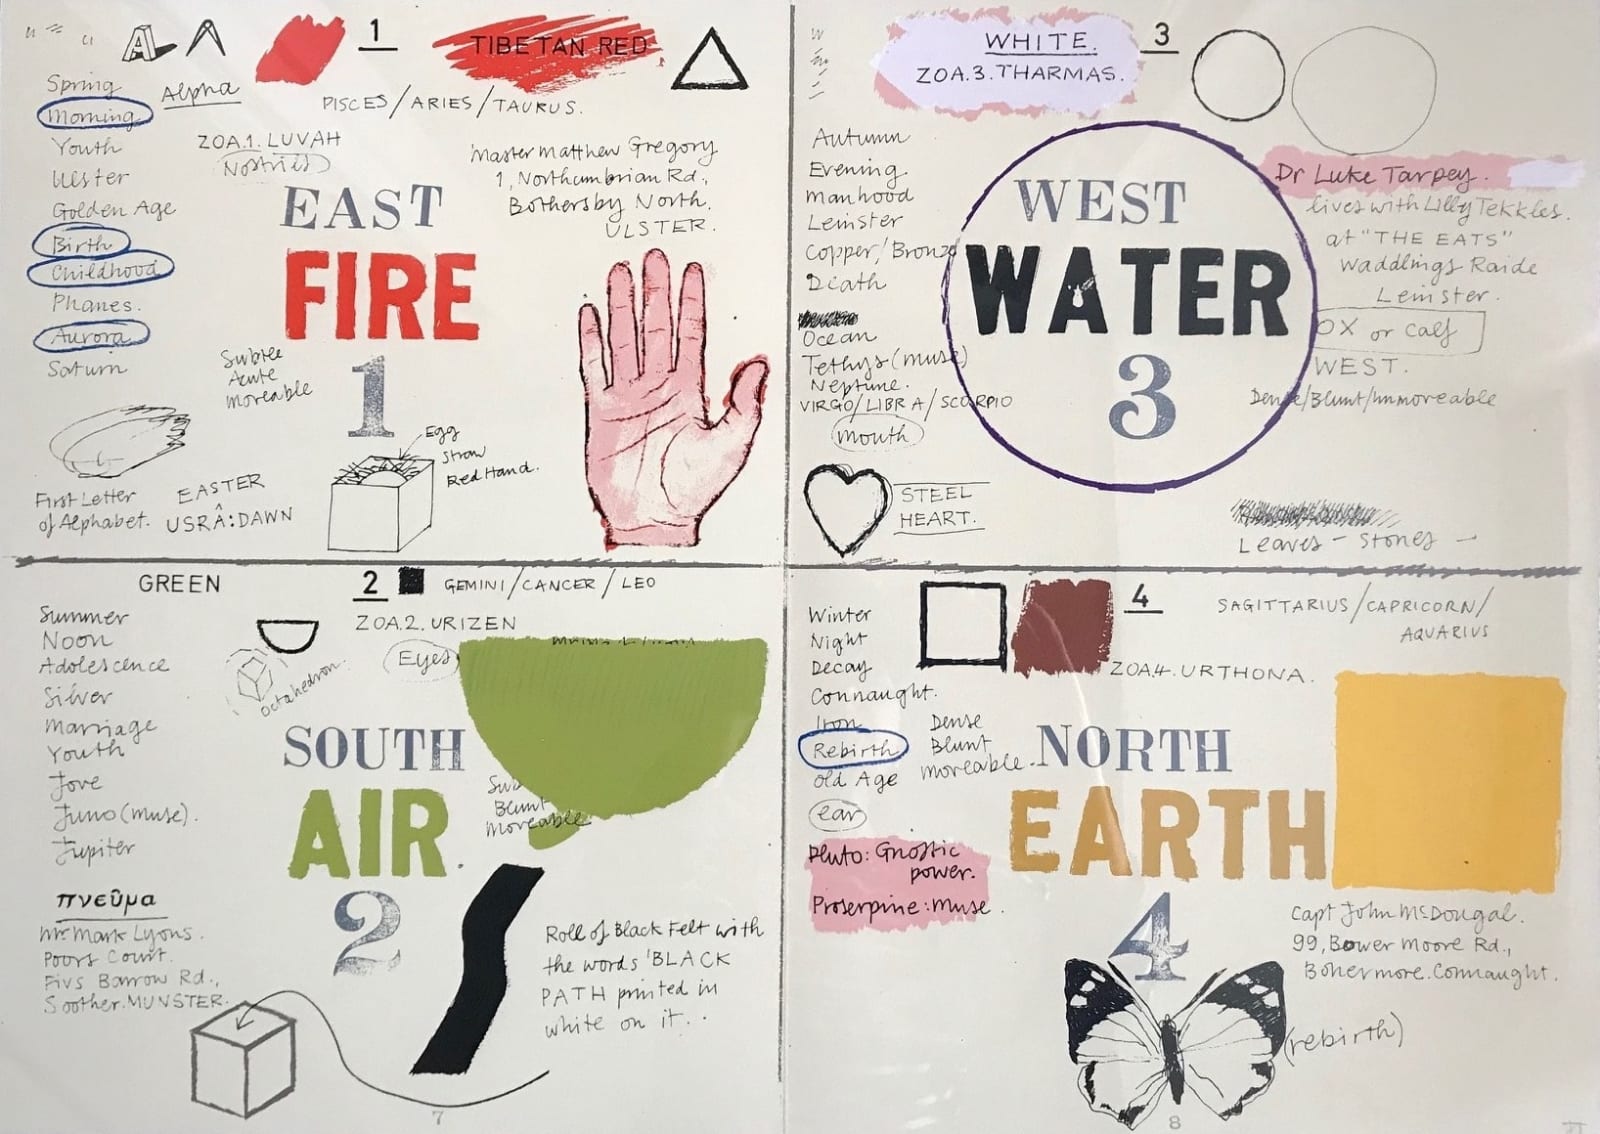 A
1
TIBETAN RED
Spring
Alpha
Morning
PISCES/ARIES/TAURUS.
Youth
ZOA.1. LUVAH
Nostrils
Ulster
Golden Age
Birth
Childhood
Phanes.
Aurora
Saturn
Master Matthew Gregory
1, Northumbrian Rd.,
Bothersby North.
ULSTER.
EAST
FIRE
1
Subtle
Acute
Moreable
Egg
Straw
Red Hand.
First Letter
of Alphabet.
EASTER
USRÂ:DAWN
WHITE.
ZOA.3. THARMAS.
3
Autumn
Evening
Manhood
Leinster
Copper/Bronze
Death
Ocean
Tethys (muse)
Neptune.
VIRGO/LIBRA/SCORPIO
mouth
WEST
WATER
3
Dr Luke Tarpey.
lives with Lilly Tekkles.
at "THE EATS"
Waddlings Raide
Leinster.
OX or calf
WEST.
Dense/Blunt/unmoreable
STEEL
HEART.
Leaves - Stones -
GREEN
2
GEMINI/CANCER/LEO
Summer
Noon
Adolescence
Silver
Marriage
Youth
Jove
Juno (muse).
Jupiter
ZOA.2. URIZEN
Eyes
octahedron.
SOUTH
AIR.
2
Blunt
Moreable
πνεῦμα
Mr. Mark Lyons.
Poors Court.
Fivs Barrow Rd.,
Soother. MUNSTER.
Roll of Black Felt with
the words 'BLACK
PATH printed in
white on it..
7
4
SAGITTARIUS/CAPRICORN/
AQUARIUS
Winter
Night
Decay
Connaught.
Iron
Rebirth
Old Age
ear
ZOA.4. URTHONA.
Dense
Blunt
moreable.
NORTH
EARTH
4
Pluto: Gnostic
power.
Proserpine: Muse.
Capt John McDougal.
99, Bower Moore Rd.,
Bohermore. Connaught.
(rebirth)
8